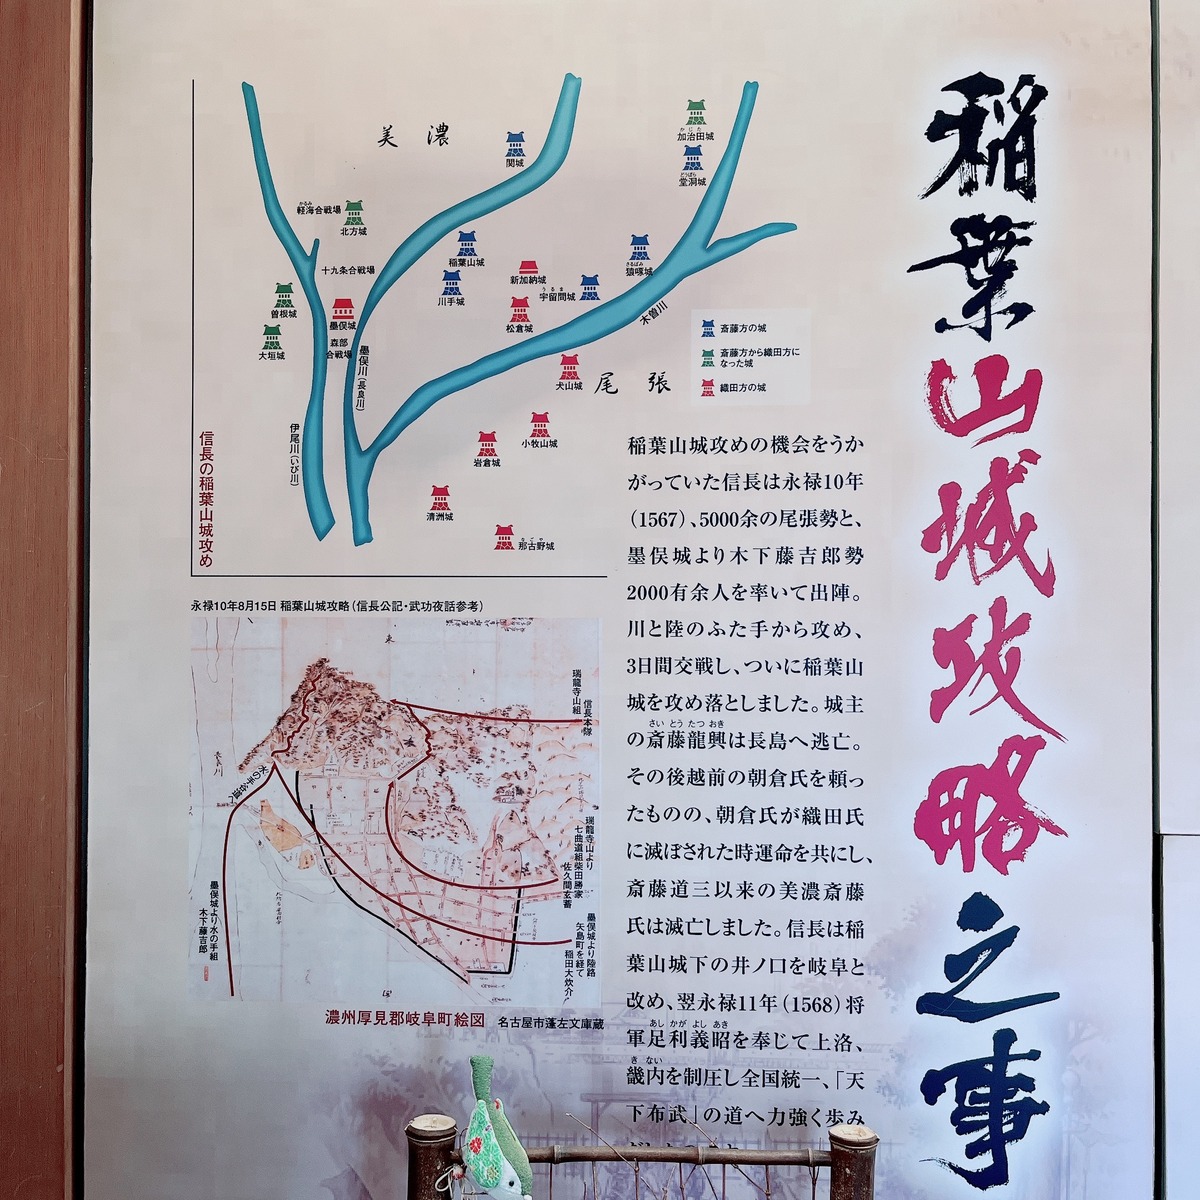 稲葉山城攻略之事
美濃
加治田城
かじた
関城
堂洞城
どうぼら
軽海合戦場
かるみ
北方城
十九条合戦場
稲葉山城
猿啄城
さるばみ
新加納城
宇留間城
うるま
川手城
曽根城
墨俣城
松倉城
木曽川
森部
合戦場
大垣城
墨俣川(長良川)
犬山城
尾張
斎藤方の城
斎藤方から織田方に
なった城
織田方の城
伊尾川(いび川)
小牧山城
岩倉城
清洲城
那古野城
なごや
信長の稲葉山城攻め
稲葉山城攻めの機会をうか
がっていた信長は永禄10年
(1567)、5000余の尾張勢と、
墨俣城より木下藤吉郎勢
2000有余人を率いて出陣。
川と陸のふた手から攻め、
3日間交戦し、ついに稲葉山
城を攻め落としました。城主
さいとうたつおき
の斎藤龍興は長島へ逃亡。
その後越前の朝倉氏を頼っ
たものの、朝倉氏が織田氏
に滅ぼされた時運命を共にし、
斎藤道三以来の美濃斎藤
氏は滅亡しました。信長は稲
葉山城下の井ノ口を岐阜と
改め、翌永禄11年(1568)将
あしかがよしあき
軍足利義昭を奉じて上洛、
きない
畿内を制圧し全国統一、「天
下布武」の道へ力強く歩み
永禄10年8月15日 稲葉山城攻略(信長公記・武功夜話参考)
東
瑞龍寺山組
信長本隊
長良川
水の手谷道へ
瑞龍寺山より
七曲道組柴田勝家
佐久間玄蕃
墨俣城より水の手組
木下藤吉郎
墨俣城より陸路
矢島町を経て
稲田大炊介
濃州厚見郡岐阜町絵図 名古屋市蓬左文庫蔵